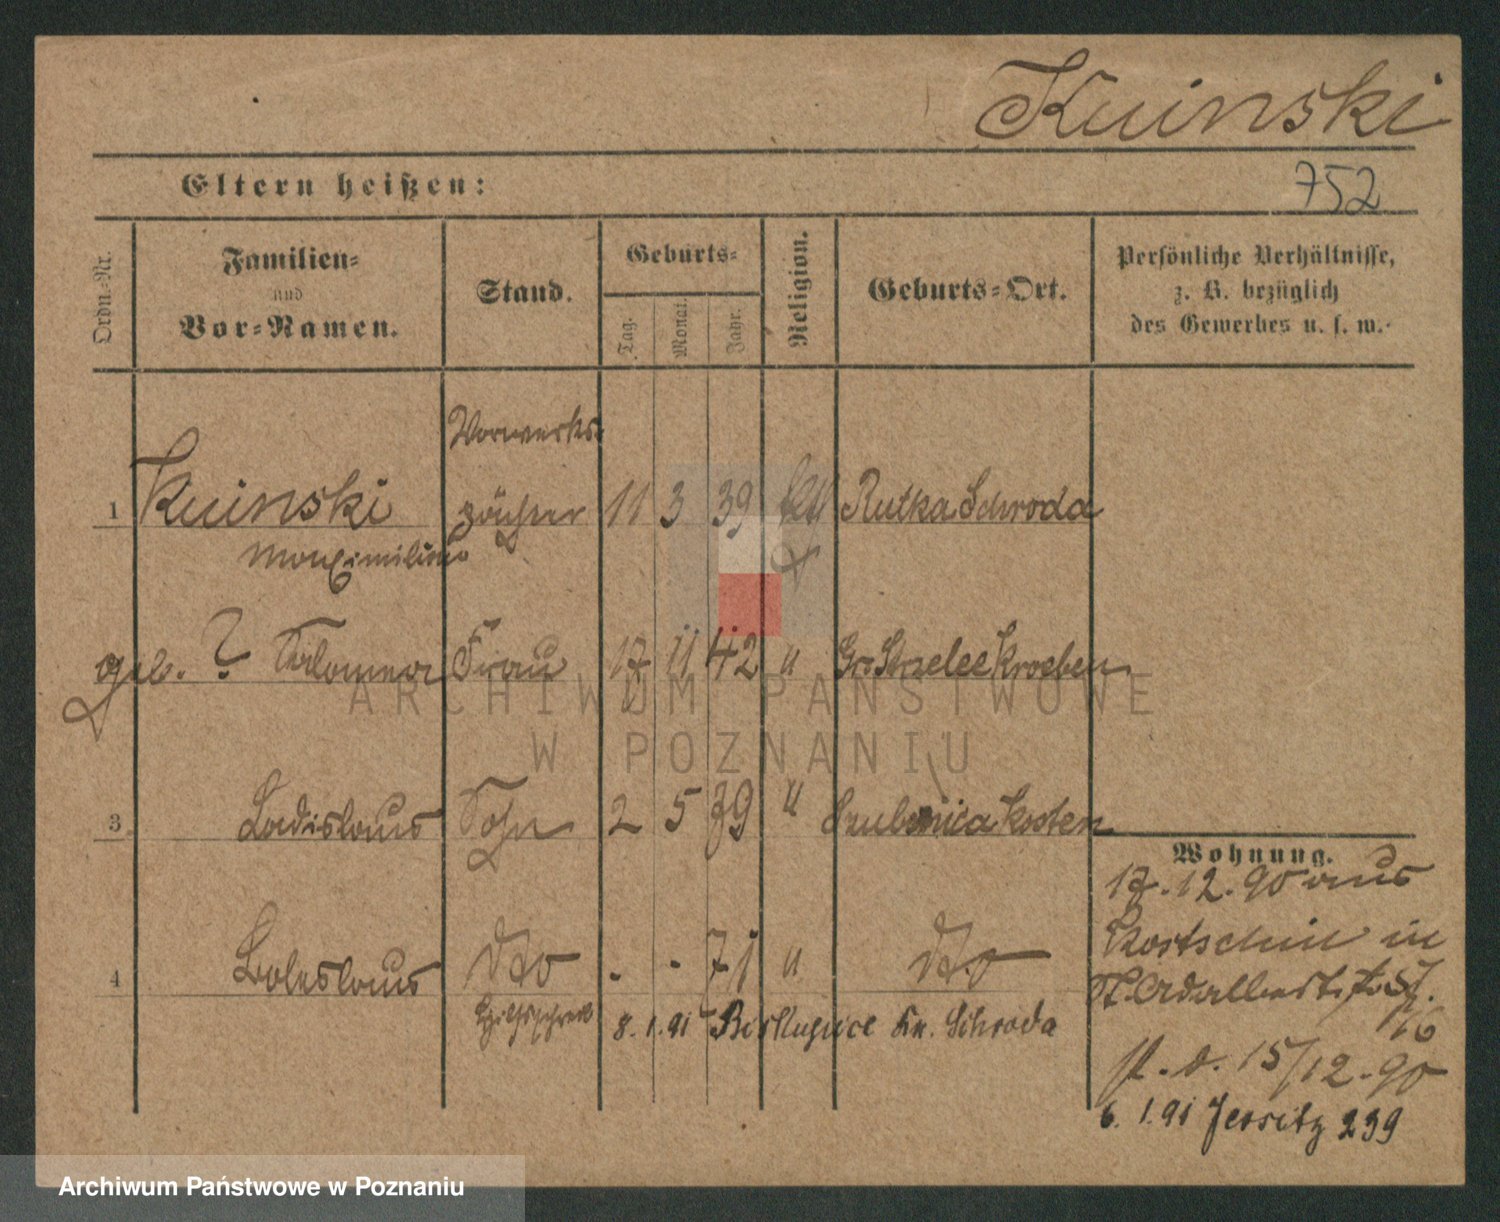 Kuinski
Eltern heißen:
752
Ordn.-Nr.
Familien-
und
Vor-Namen.
Stand.
Geburts-
Tag.
Monat.
Jahr.
Religion.
Geburts-Ort.
Persönliche Verhältnisse,
z. B. bezüglich
des Gewerbes u. s. w.
Vorwerks-
1 Kuinski 11 3 39 kth Rutka Schroda
Maximilian
geb. ? Frau 17 11 42 " Gr. Strzelce Kroeben
3 Ladislaus Sohn 2 5 79 " Kosten
Wohnung.
17.12.90 aus
Kostschin in
4 Boleslaus dto - - 71 " dto
St. Adalbert
8.1.91 Biskupice Kr. Schroda
16
15/12.90
6.1.91 Jersitz 239
ARCHIWUM PAŃSTWOWE
W POZNANIU
Archiwum Państwowe w Poznaniu